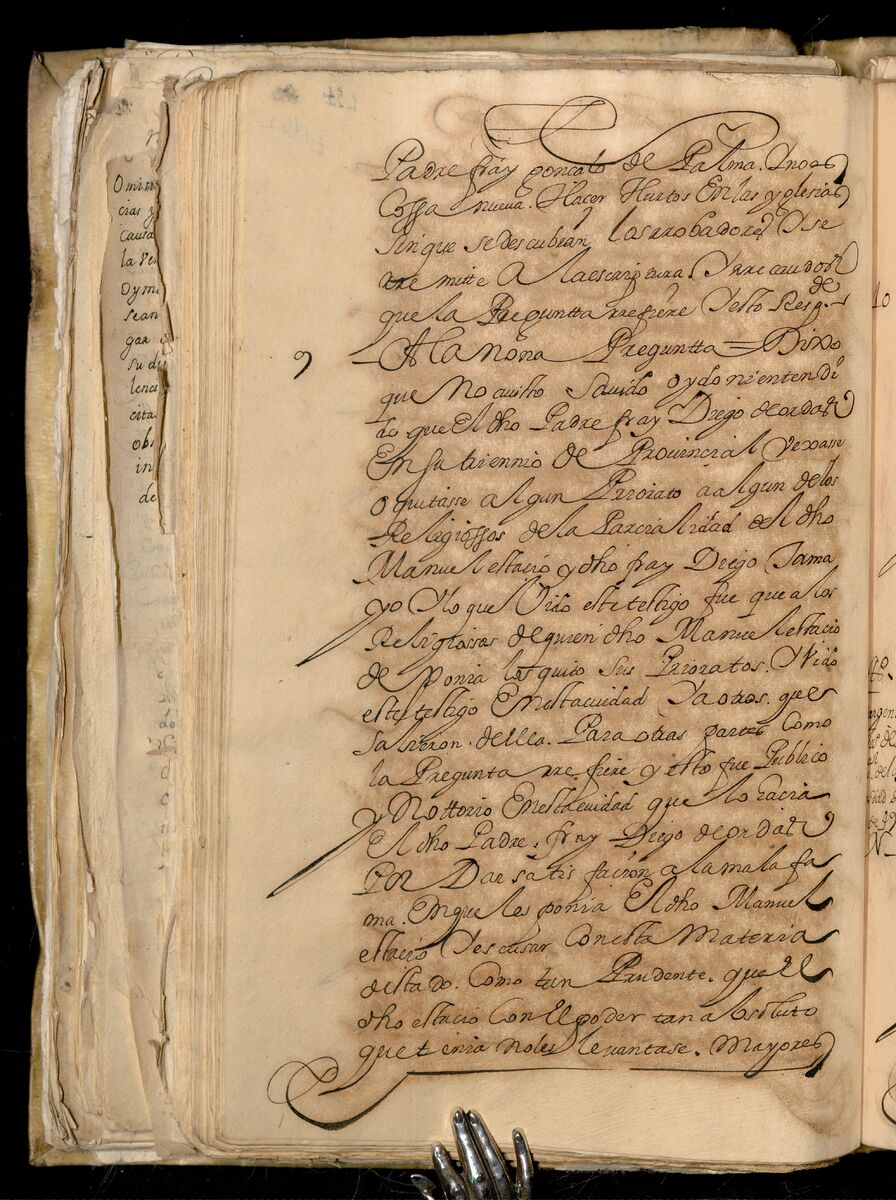 Padre fray gonçalo de Palma. Y no es
Cossa nueva. Hacer Hurtos En las yglesias
Sin que se descubran los rrobadores Y se
rremitte A la escriptura. Y
que la Preguntta rrefiere Y esto Resp.de
9
A la nona Preguntta = Dixo
que No a visto Savido oydo ni entendi
do que El dho Padre fray Diego de ordas
En su triennio de Provincial Vexasse
o quitasse algun Priorato a algun de los
Religiossos de la Parcialidad del dho
Manuel estacio y dho fray Diego Tama
yo Y lo que Vido este testigo fue que a los
Religiossos de quien dho Manuel estacio
de ponia les quito sus Prioratos. Y Vido
este testigo En esta ciudad Y a otros. que
salieron. de ella. Para otras partes Como
la Pregunta rrefiere y esto fue Publico
y Nottorio En esta ciudad que lo hacia
El dho Padre. fray Diego de ordas
Por Dar satisfacion a la mala fa
ma. En que les ponia El dho Manuel
estacio Y escusar Con esta Materia
de estado. Como tan Prudente. que El
dho estacio Con El poder tan absoluto
que tenia no les levantase. Mayores
Omitir
cias y
causa
la Ve
sean
gar
su di
lenc
cita
obs
in
de
lo
N